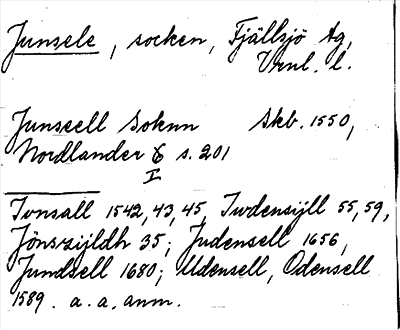 Junsele, socken, Fjällsjö tg,
Vrnl. l.
Junseell Soknn Skb. 1550,
Nordlander s. 201
I
Tvnsall 1542, 43, 45, Iwdensijll 55, 59,
Jönszijldh 35; Judensell 1656,
Jundsell 1680; Udensell, Odensell
1589. a. a. anm.